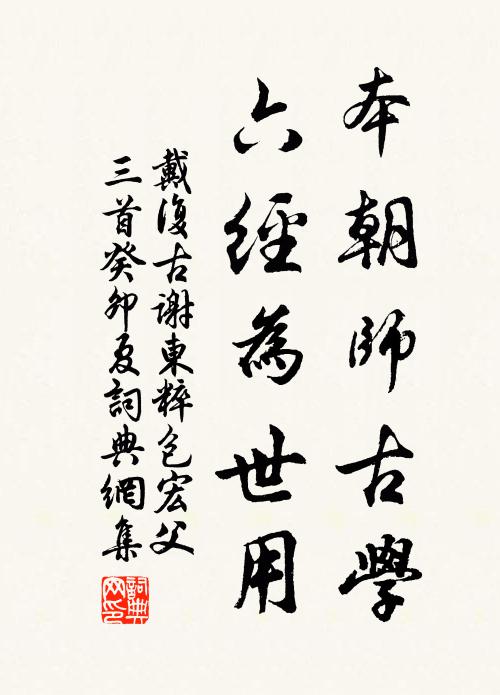 本朝師古學
六經為世用
戴復古謝東粹包宏父
三首癸卯夏詞典網集
詞典網印